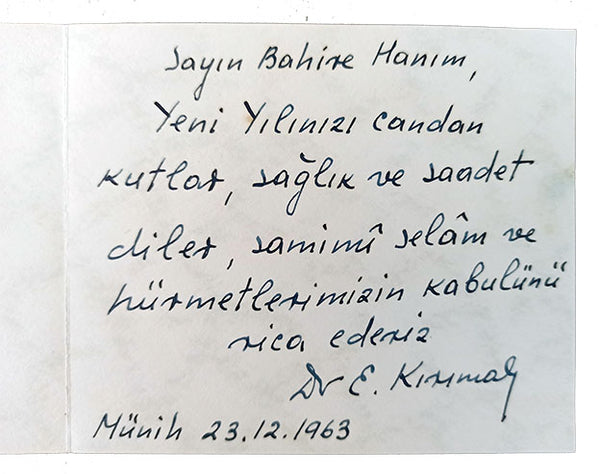 Sayın Bahire Hanım,
Yeni Yılınızı candan
kutlar, sağlık ve saadet
diler, samimî selâm ve
hürmetlerimizin kabulünü
rica ederiz
Dr E. Kırımal
Münih 23.12.1963